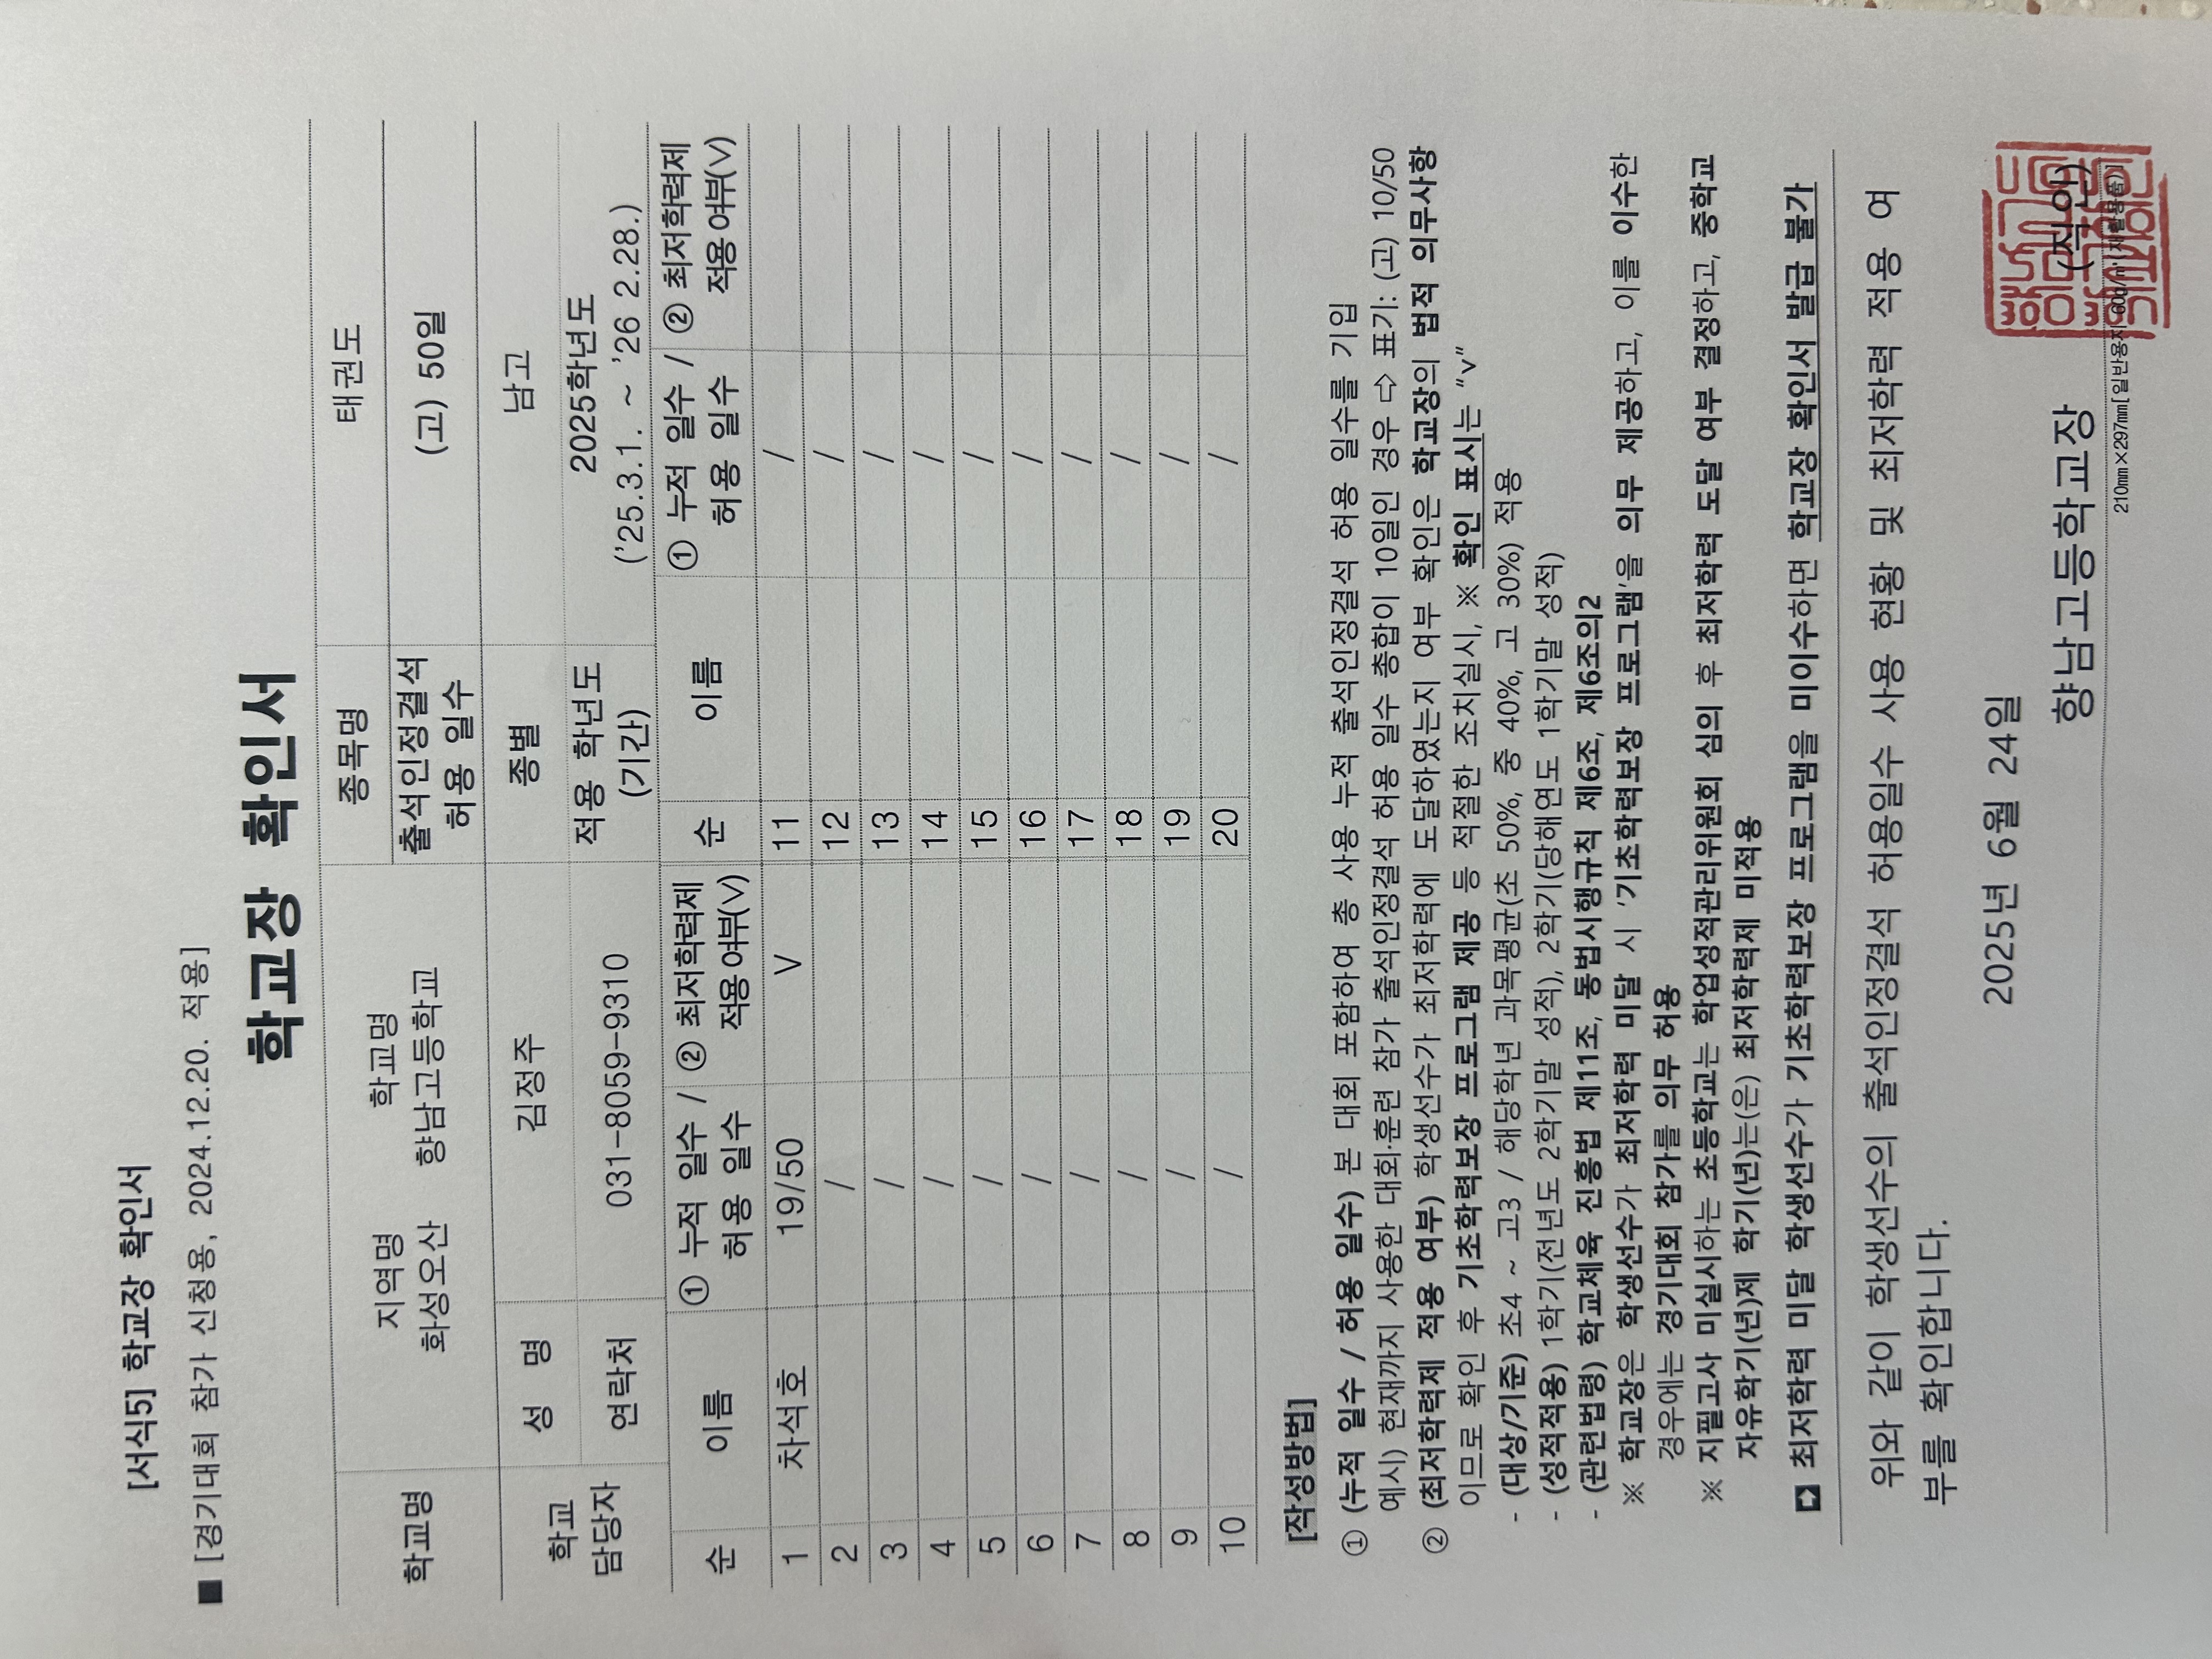 [서식5] 학교장 확인서
■ [경기대회 참가 신청용, 2024.12.20. 적용]
학교장 확인서
학교명
지역명 학교명
화성오산 향남고등학교
종목명
태권도
출석인정결석
허용 일수
(고) 50일
학교
담당자
성 명
김정주
종별
남고
연락처
031-8059-9310
적용 학년도
(기간)
2025학년도
('25.3.1. ~ '26 2.28.)
순 이름 ① 누적 일수 / 허용 일수 ② 최저학력제 적용여부(V) 순 이름 ① 누적 일수 / 허용 일수 ② 최저학력제 적용여부(V)
1 차석호 19/50 V 11 /
2 / 12 /
3 / 13 /
4 / 14 /
5 / 15 /
6 / 16 /
7 / 17 /
8 / 18 /
9 / 19 /
10 / 20 /
[작성방법]
① (누적 일수 / 허용 일수) 본 대회 포함하여 총 사용 누적 출석인정결석 허용 일수를 기입
예시) 현재까지 사용한 대회·훈련 참가 출석인정결석 허용 일수 총합이 10일인 경우 ⇨ 표기: (고) 10/50
② (최저학력제 적용 여부) 학생선수가 최저학력에 도달하였는지 여부 확인은 학교장의 법적 의무사항
이므로 확인 후 기초학력보장 프로그램 제공 등 적절한 조치실시, ※ 확인 표시는 "v"
- (대상/기준) 초4 ~ 고3 / 해당학년 과목평균(초 50%, 중 40%, 고 30%) 적용
- (성적적용) 1학기(전년도 2학기말 성적), 2학기(당해연도 1학기말 성적)
- (관련법령) 학교체육 진흥법 제11조, 동법시행규칙 제6조, 제6조의2
※ 학교장은 학생선수가 최저학력 미달 시 '기초학력보장 프로그램'을 의무 제공하고, 이를 이수한
경우에는 경기대회 참가를 의무 허용
※ 지필고사 미실시하는 초등학교는 학업성적관리위원회 심의 후 최저학력 도달 여부 결정하고, 중학교
자유학기(년)제 학기(년)는(은) 최저학력제 미적용
➡ 최저학력 미달 학생선수가 기초학력보장 프로그램을 미이수하면 학교장 확인서 발급 불가
위와 같이 학생선수의 출석인정결석 허용일수 사용 현황 및 최저학력 적용 여
부를 확인합니다.
2025년 6월 24일
향남고등학교장 (직인)
210㎜×297㎜[일반용지 60g/㎡(재활용품)]